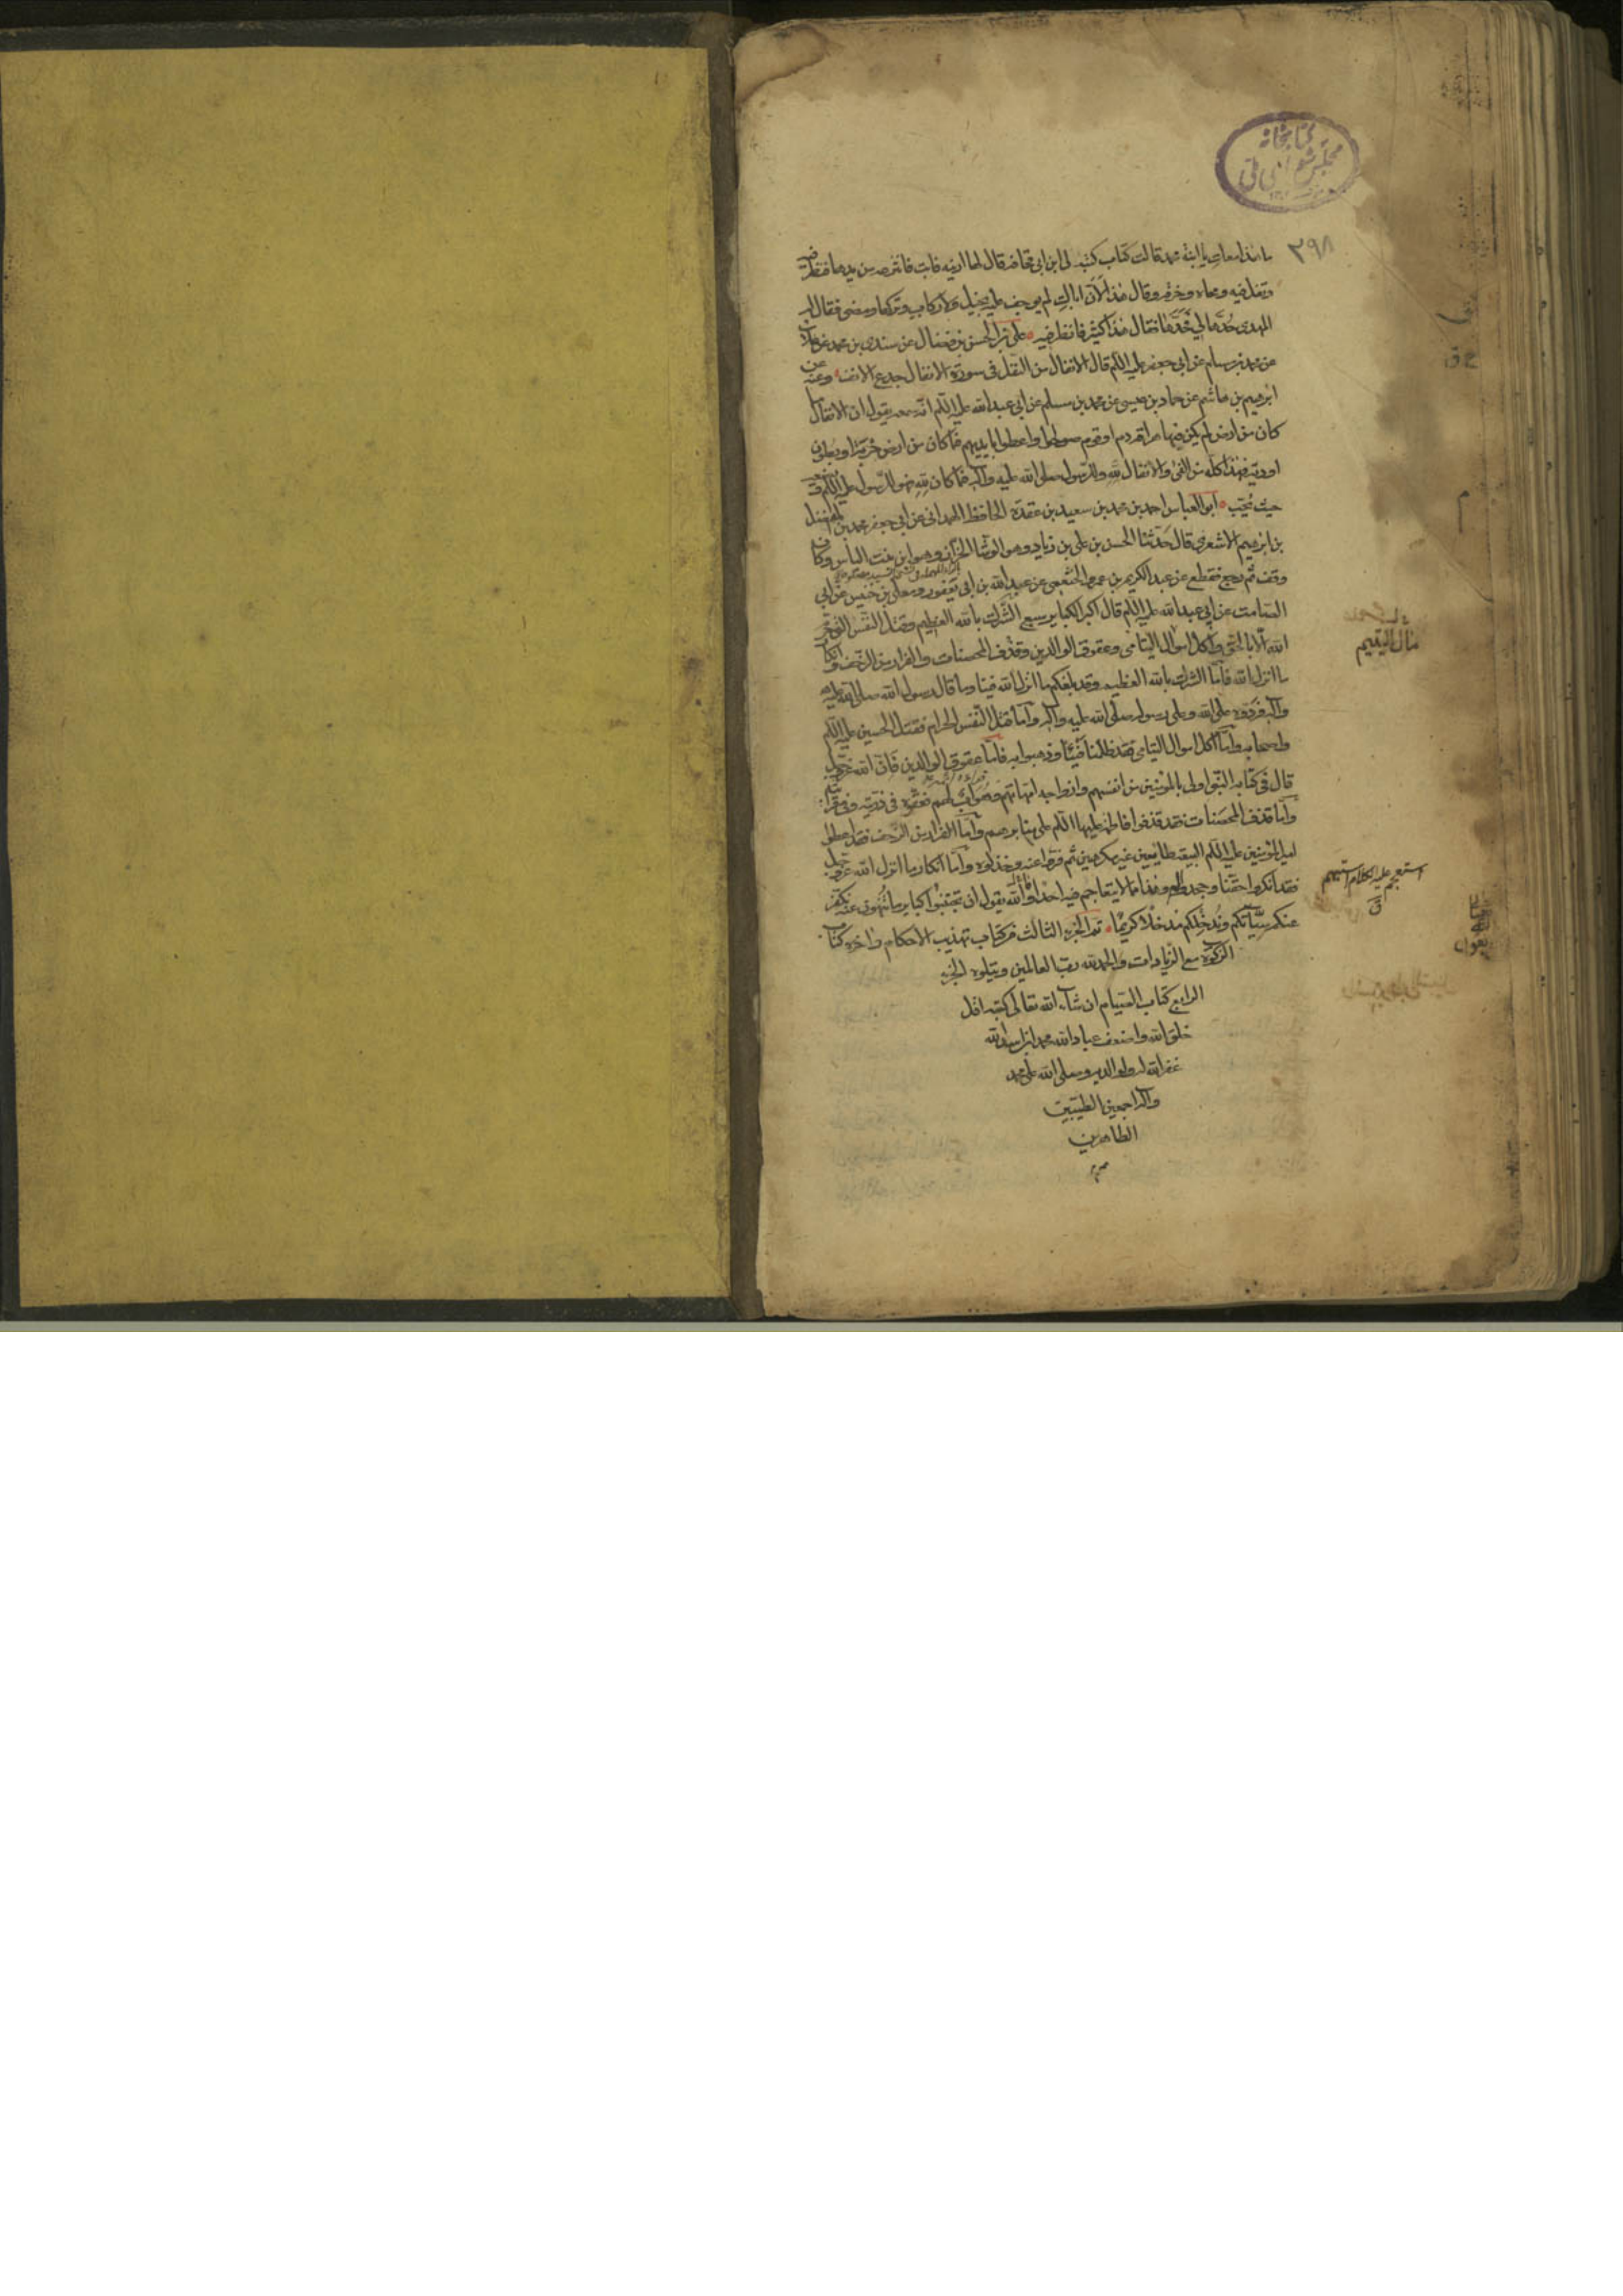 كتابخانه
مجلس شورای ملی
۲۹۸
ما هذا معك يا ابنة محمد قالت كتاب كتبه لی ابن ابی قحافه قال لها ارينه فابت فانتزعه من يدها فنظر فيه
وتفل فيه ومحاه وخرقه وقال هذا لأن اباك لم يوجف عليه بخيل ولا ركاب وتركها ومضى فقال له
المهدی حُدّها لي فحدّها فقال هذا كثير فانظر فيه علی بن الحسن بن فضال عن سندی بن محمد عن علا
عن محمد بن مسلم عن ابی جعفر عليه السلم قال الانفال من النفل فی سورة الانفال جدع الانف وعنه عن
ابرهيم بن هاشم عن حماد بن عيسى عن محمد بن مسلم عن ابی عبد الله عليه السلم انه سمعه يقول ان الانفال ما
كان من ارض لم يكن فيها هراقة دم او قوم صولحوا واعطوا بايديهم فما كان من ارض خربة او بطون
اودية فهذا كله من الفیء والانفال لله وللرسول صلی الله عليه وآله فما كان لله فهو للرسول عليه السلم يضعه
حيث يُحِبّ ابو العباس احمد بن محمد بن سعيد بن عقدة الحافظ الهمدانی عن ابی جعفر محمد بن المفضل
بن ابرهيم الاشعری قال حَدّثنا الحسن بن علی بن زياد وهو الوشّا الخزّاز وهو ابن بنت الياس وكان
وقف ثم رجع فقطع عن عبد الكريم بن عمرو الخثعمی عن عبد الله بن ابی يعفور ومعلی بن خنيس عن ابی
الصامت عن ابی عبد الله عليه السلم قال اكبر الكباير سبع الشّرك بالله العظيم وقتل النّفس التی حرّم
الله الّا بالحقّ واكل اموال اليتامی وعقوق الوالدين وقذف المحصنات والفرار من الزحف وانكار
ما انزل الله فامّا الشرك بالله العظيم فقد بلغكم ما انزل الله فينا وما قال رسول الله صلی الله عليه
وآله فردّوه علی الله وعلی رسوله صلّی الله عليه وآله وامّا قتل النّفس الحرام فقتل الحسين عليه السلم
واصحابه وامّا اكل اموال اليتامی فقد ظلمنا فيئنا وذهبوا به وامّا عقوق الوالدين فانّ الله عزّ وجلّ
قال فی كتابه النّبی اولی بالمؤمنين من انفسهم وازواجه امّهاتهم وهو ابٌ لهم فعقّوه فی ذريّته وفی قرابته
وامّا قذف المحصنات فقد قذفوا فاطمة عليها السلم علی منابرهم وامّا الفرار من الزحف فقد اعطوا
امير المؤمنين عليه السلم البيعة طائعين غير مكرهين ثم فرّوا عنه وخذلوه وامّا انكار ما انزل الله عزّ وجلّ
فقد انكروا حقّنا وجحدوا له وهذا ممّا لا يتعاجم فيه احد والله يقول ان تجتنبوا كباير ما تُنهون عنه نكفّر
عنكم سيّئاتكم ونُدخِلكم مدخلًا كريمًا تم الجزء الثالث من كتاب تهذيب الاحكام وآخره كتاب
الزكوة مع الزيادات والحمد لله رب العالمين ويتلوه الجزء
الرابع كتاب الصيام ان شاء الله تعالی كتبه اقل
خلق الله واضعف عباد الله محمد بن اسد الله
غفر الله له ولوالديه وصلی الله علی محمد
وآله اجمعين الطيبين
الطاهرين
مال اليتيم
استعجم عليه الكلام استبهم
ق